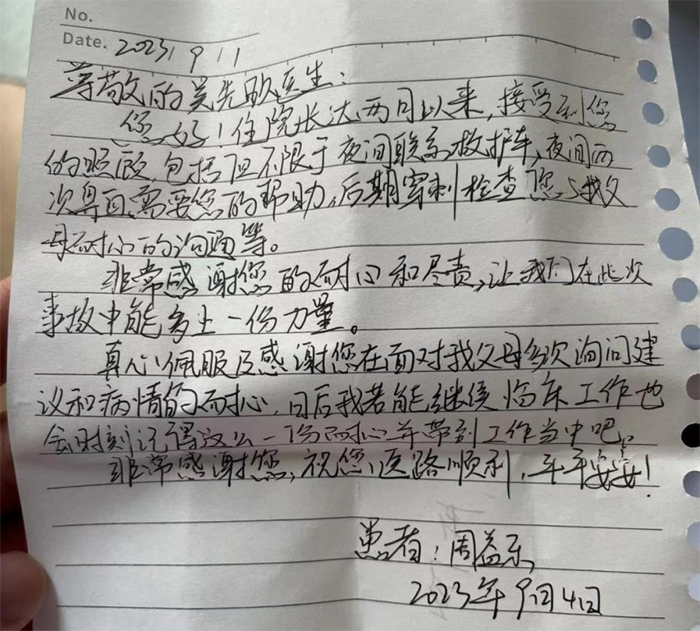 No.
Date. 2023/ 9 / 1
尊敬的吴先欧医生:
您好!住院长达两月以来,接受到您
的照顾,包括但不限于夜间联系救护车,夜间两
次鼻血需要您的帮助,后期穿刺检查您与我父
母耐心的沟通等。
非常感谢您的耐心和尽责,让我们在此次
事故中能多上一份力量。
真心佩服及感谢您在面对我父母多次询问建
议和病情的耐心,日后我若能继续临床工作也
会时刻记得这么一份耐心并带到工作当中吧。
非常感谢您,祝您,医路顺利,平平安安!
患者:周益乐
2023年9月4日